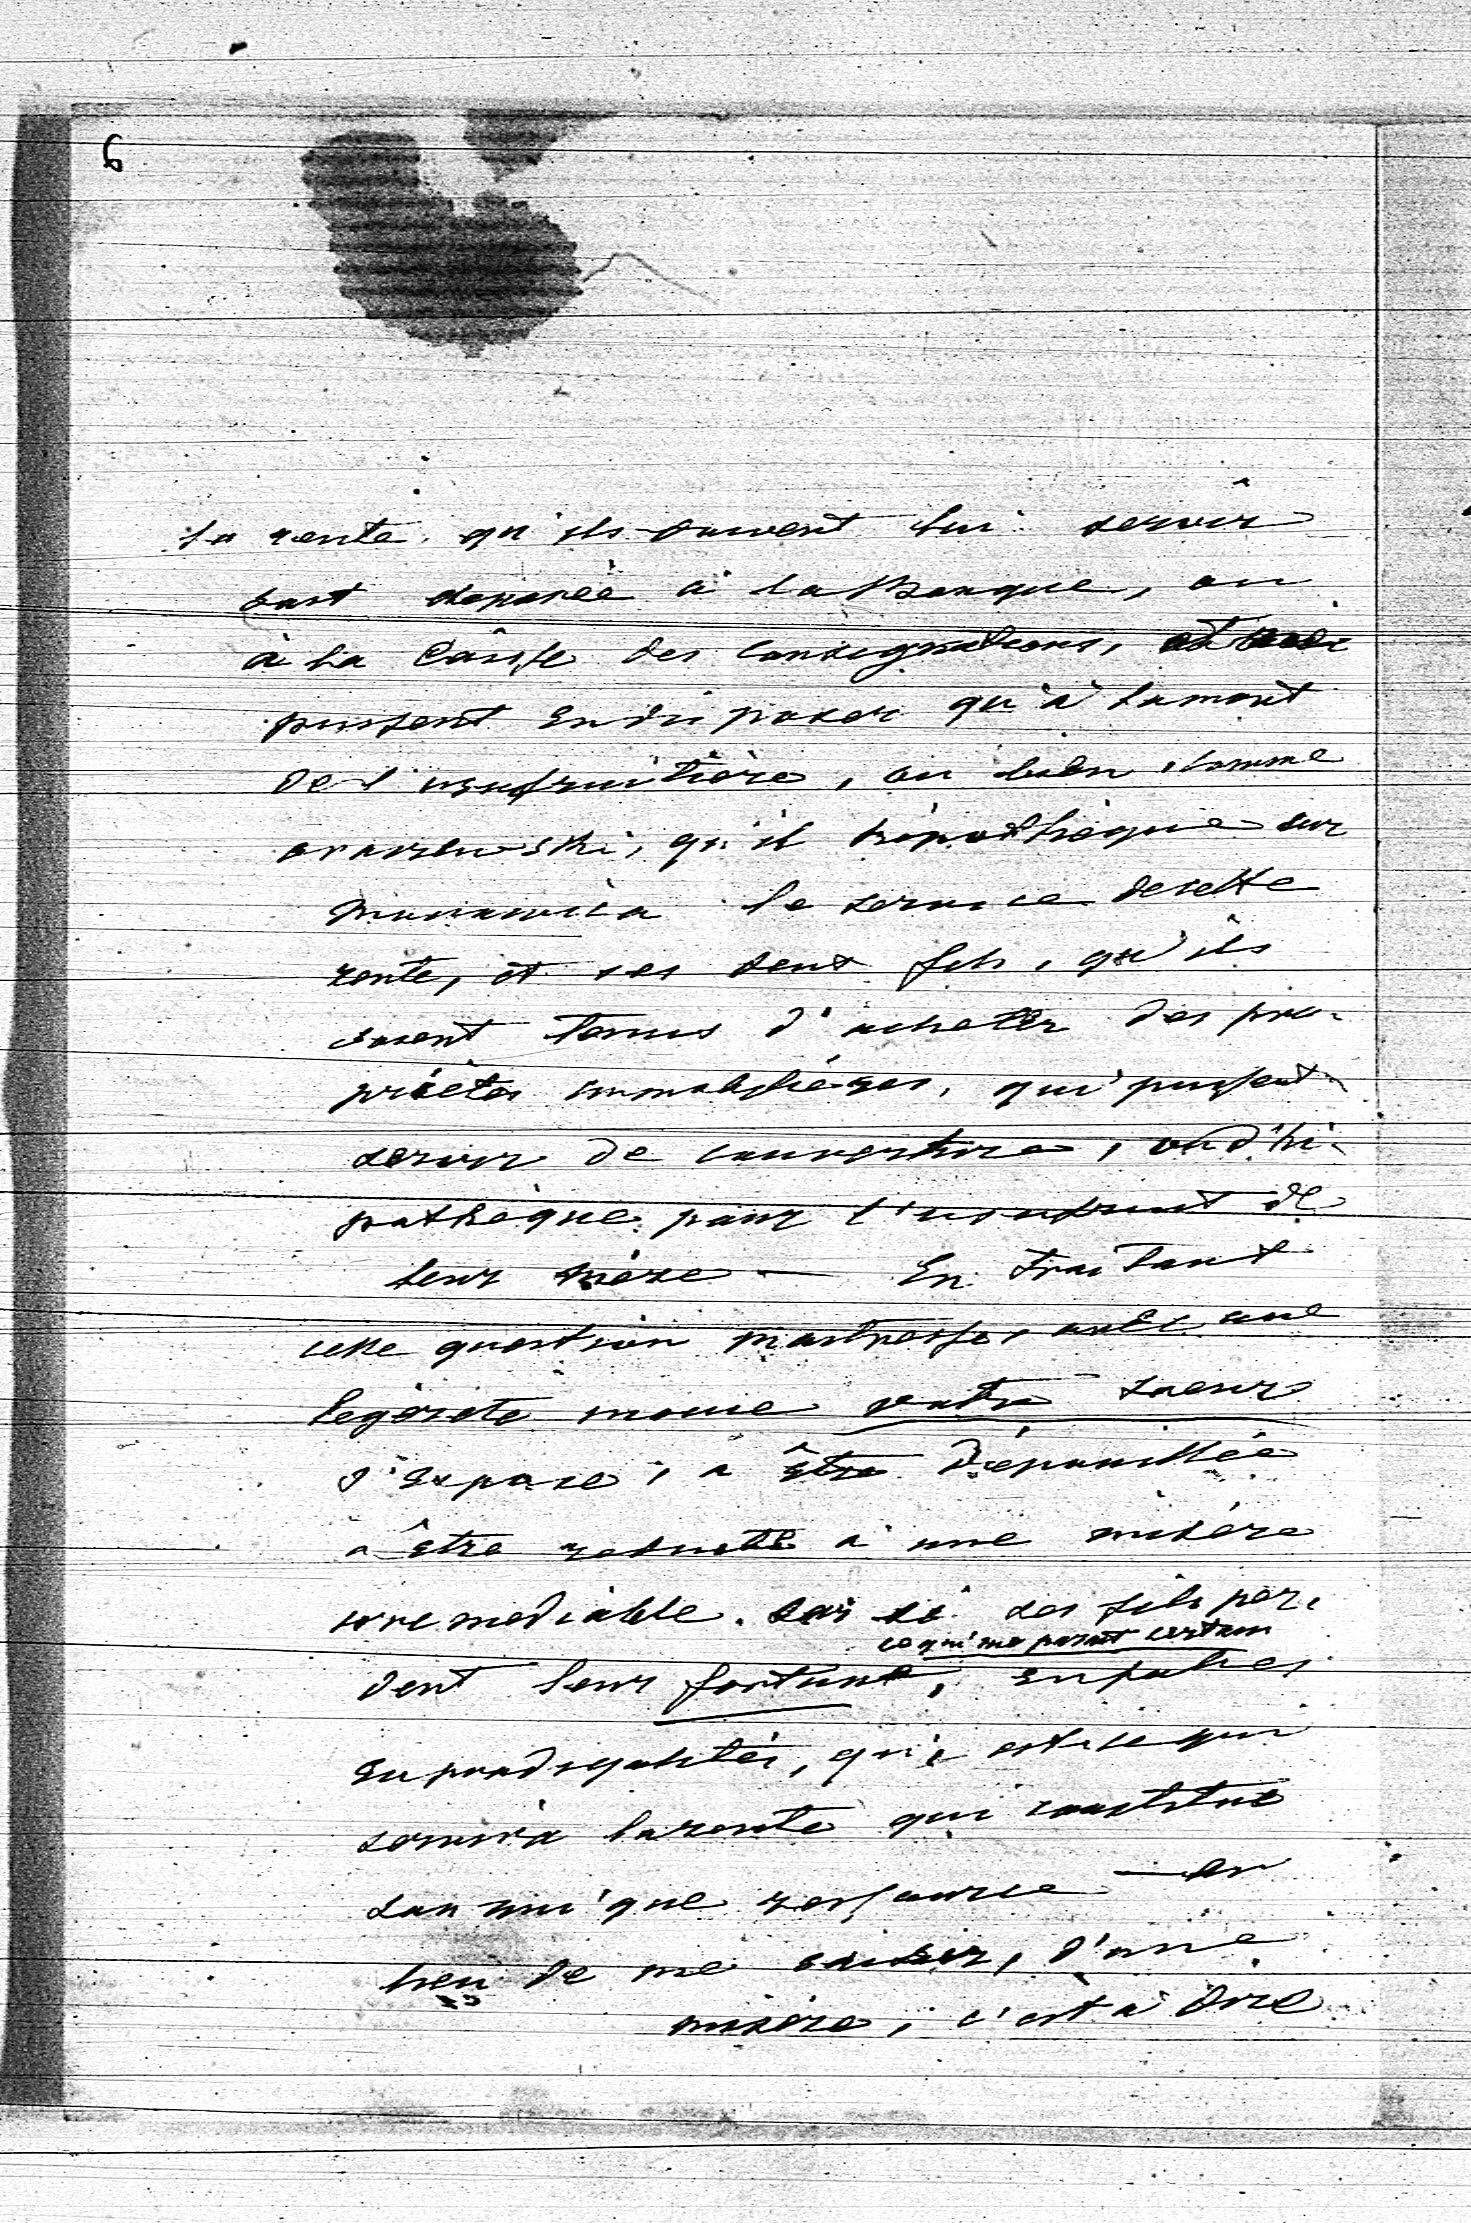 6
la rente, qu'ils doivent lui servir
soit déposée à la Banque, ou
à la Caisse des Consignations, et
pussent en disposer qu'à la mort
de l'usufruitière, ou bien, comme
qu'il hipothèque sur
le service de cette
rente, et ses deux fils, qu'ils
soient tenus d'acheter des pro-
priétés immobilières, qui pussent
servir de couverture, ou d'hi-
pothèque pour l'usufruit de
leur mère — En traitant
cette question maitresse, avec une
légèreté inouie votre soeur
s'expose, a être dépouillée
a être reduite a une misère
irremediable. Car si ses fils per-
ce qui me parait certain
dent leur fortune, en folies
en prodigalités, qui est ce qui
servira la rente qui constitue
son unique ressource — en
lieu de me causer, d'une
misère, c'est à dire